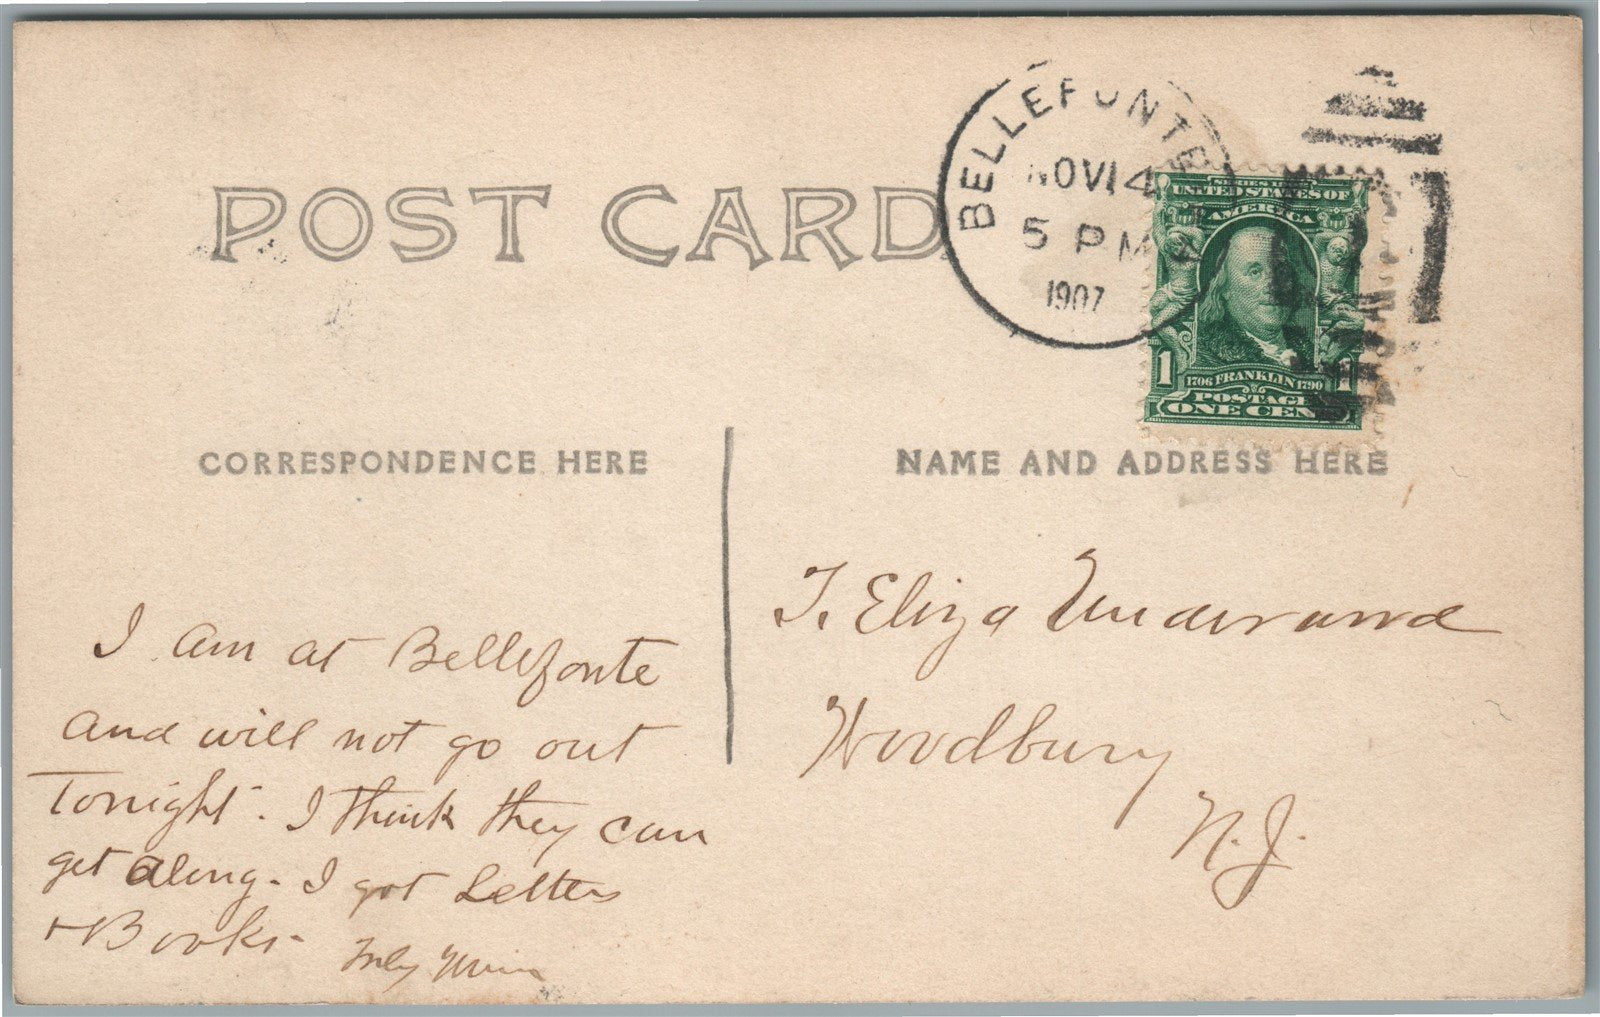 POST CARD
BELLEFONTE
NOV 14
5 PM
1907
SERIES 1902
UNITED STATES OF
AMERICA
1 1706 FRANKLIN 1790 1
POSTAGE
ONE CENT
CORRESPONDENCE HERE
NAME AND ADDRESS HERE
I am at Bellefonte
and will not go out
Tonight. I think they can
get along. I got Letters
+ Books.
T. Eliza
Woodbury
N.J.